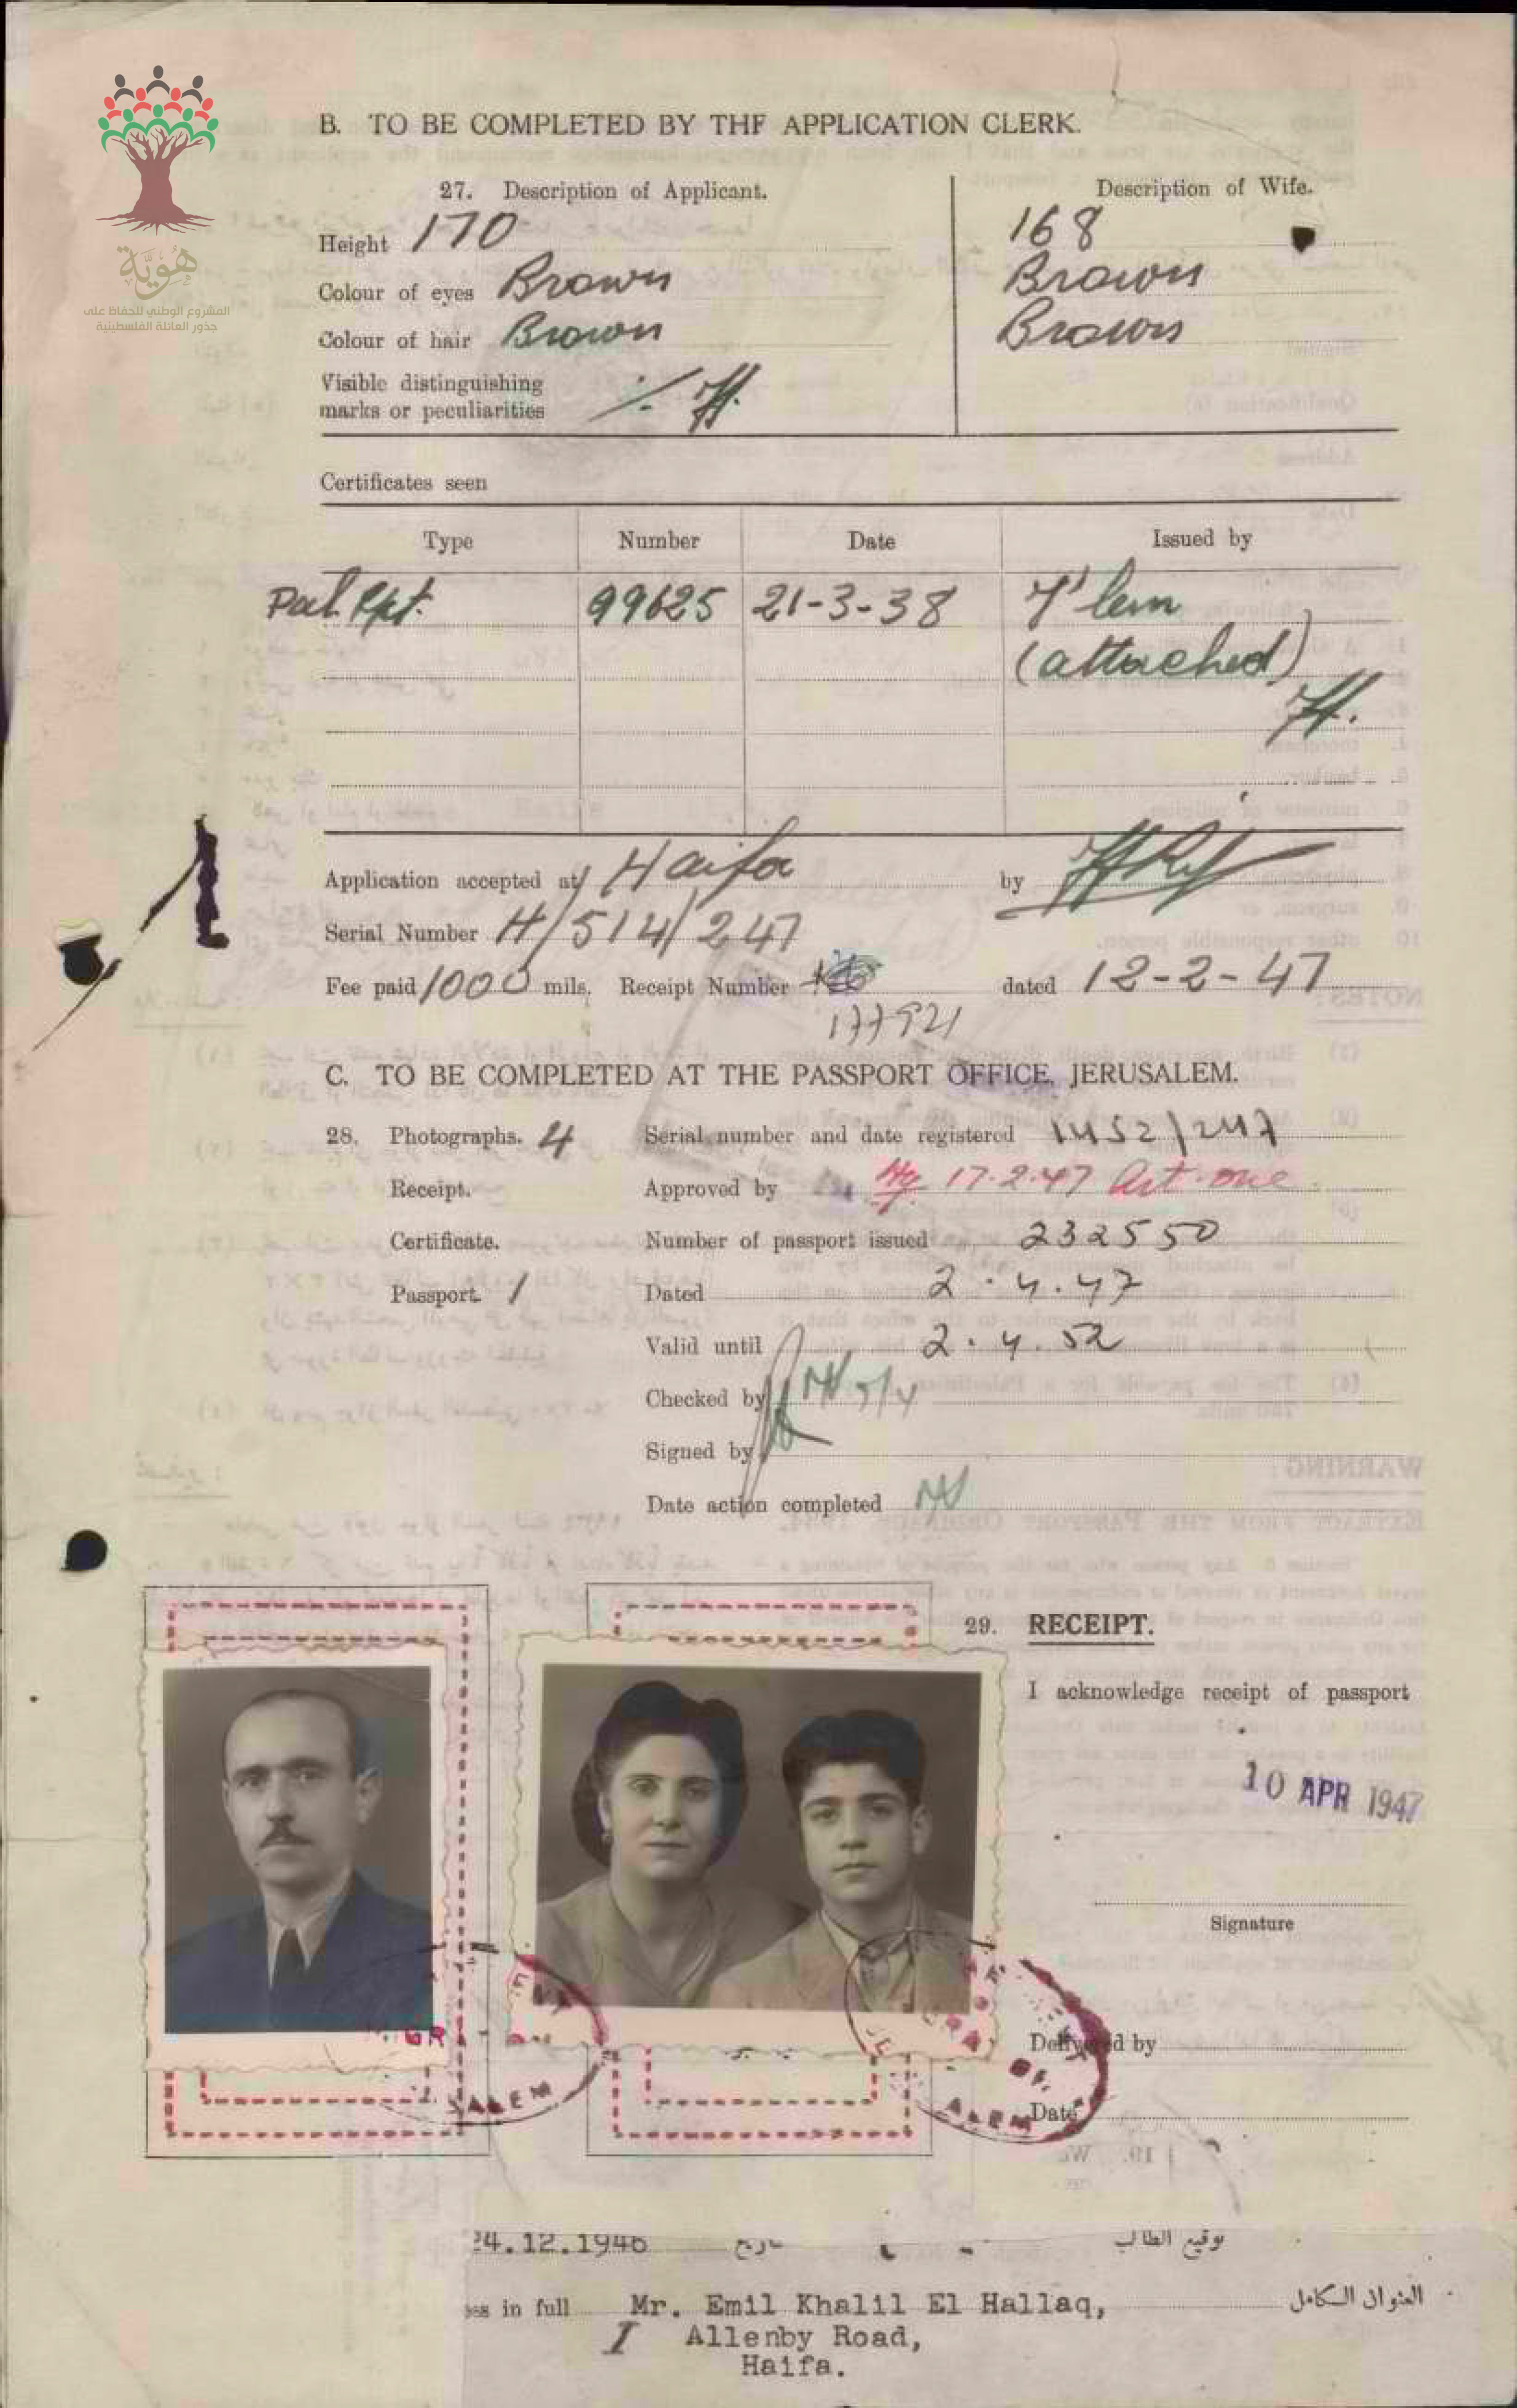 هوية
المشروع الوطني للحفاظ على
جذور العائلة الفلسطينية
B. TO BE COMPLETED BY THF APPLICATION CLERK.
27. Description of Applicant.
Description of Wife.
Height 170
168
Colour of eyes Brown
Brown
Colour of hair Brown
Brown
Visible distinguishing
marks or peculiarities
Certificates seen
Type Number Date Issued by
Pal. Ppt. 99625 21-3-38 J'lem
(attached)
Application accepted at Haifa by
Serial Number H/514/247
Fee paid 1000 mils. Receipt Number dated 12-2-47
177921
C. TO BE COMPLETED AT THE PASSPORT OFFICE, JERUSALEM.
28. Photographs. 4 Serial number and date registered 1452/247
Receipt. Approved by 17.2.47 Art. one
Certificate. Number of passport issued 232550
Passport. 1 Dated 2.4.47
Valid until 2.4.52
Checked by
Signed by
Date action completed
29. RECEIPT.
I acknowledge receipt of passport
10 APR 1947
Signature
Delivered by
Date
24.12.1946 توقيع الطالب
in full Mr. Emil Khalil El Hallaq, العنوان الكامل
I Allenby Road,
Haifa.